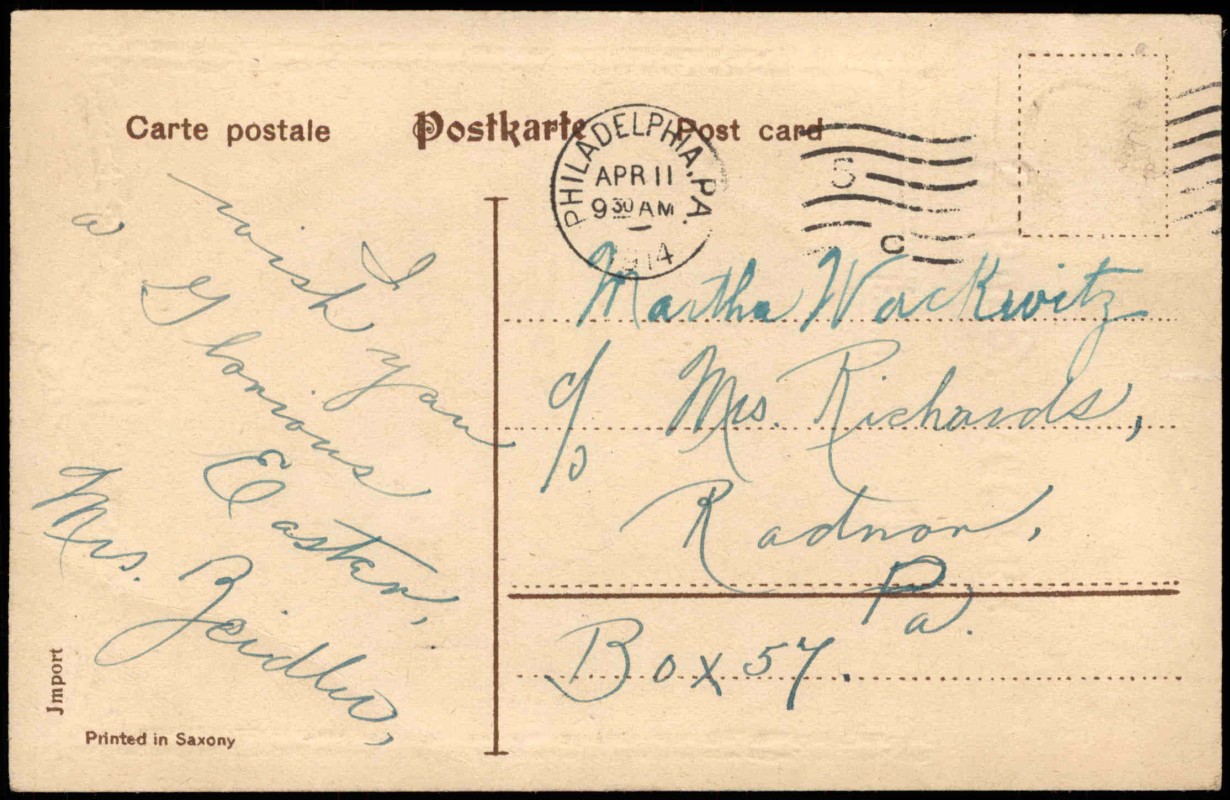 Carte postale Postkarte Post card
PHILADELPHIA, PA.
APR 11
9 30 AM
1914
5
C
I
wish you
a Glorious
Easter,
Mrs. Zeidler,
Martha Wackwitz
c/o Mrs. Richards,
Radnor,
Pa.
Box 57.
Jmport
Printed in Saxony